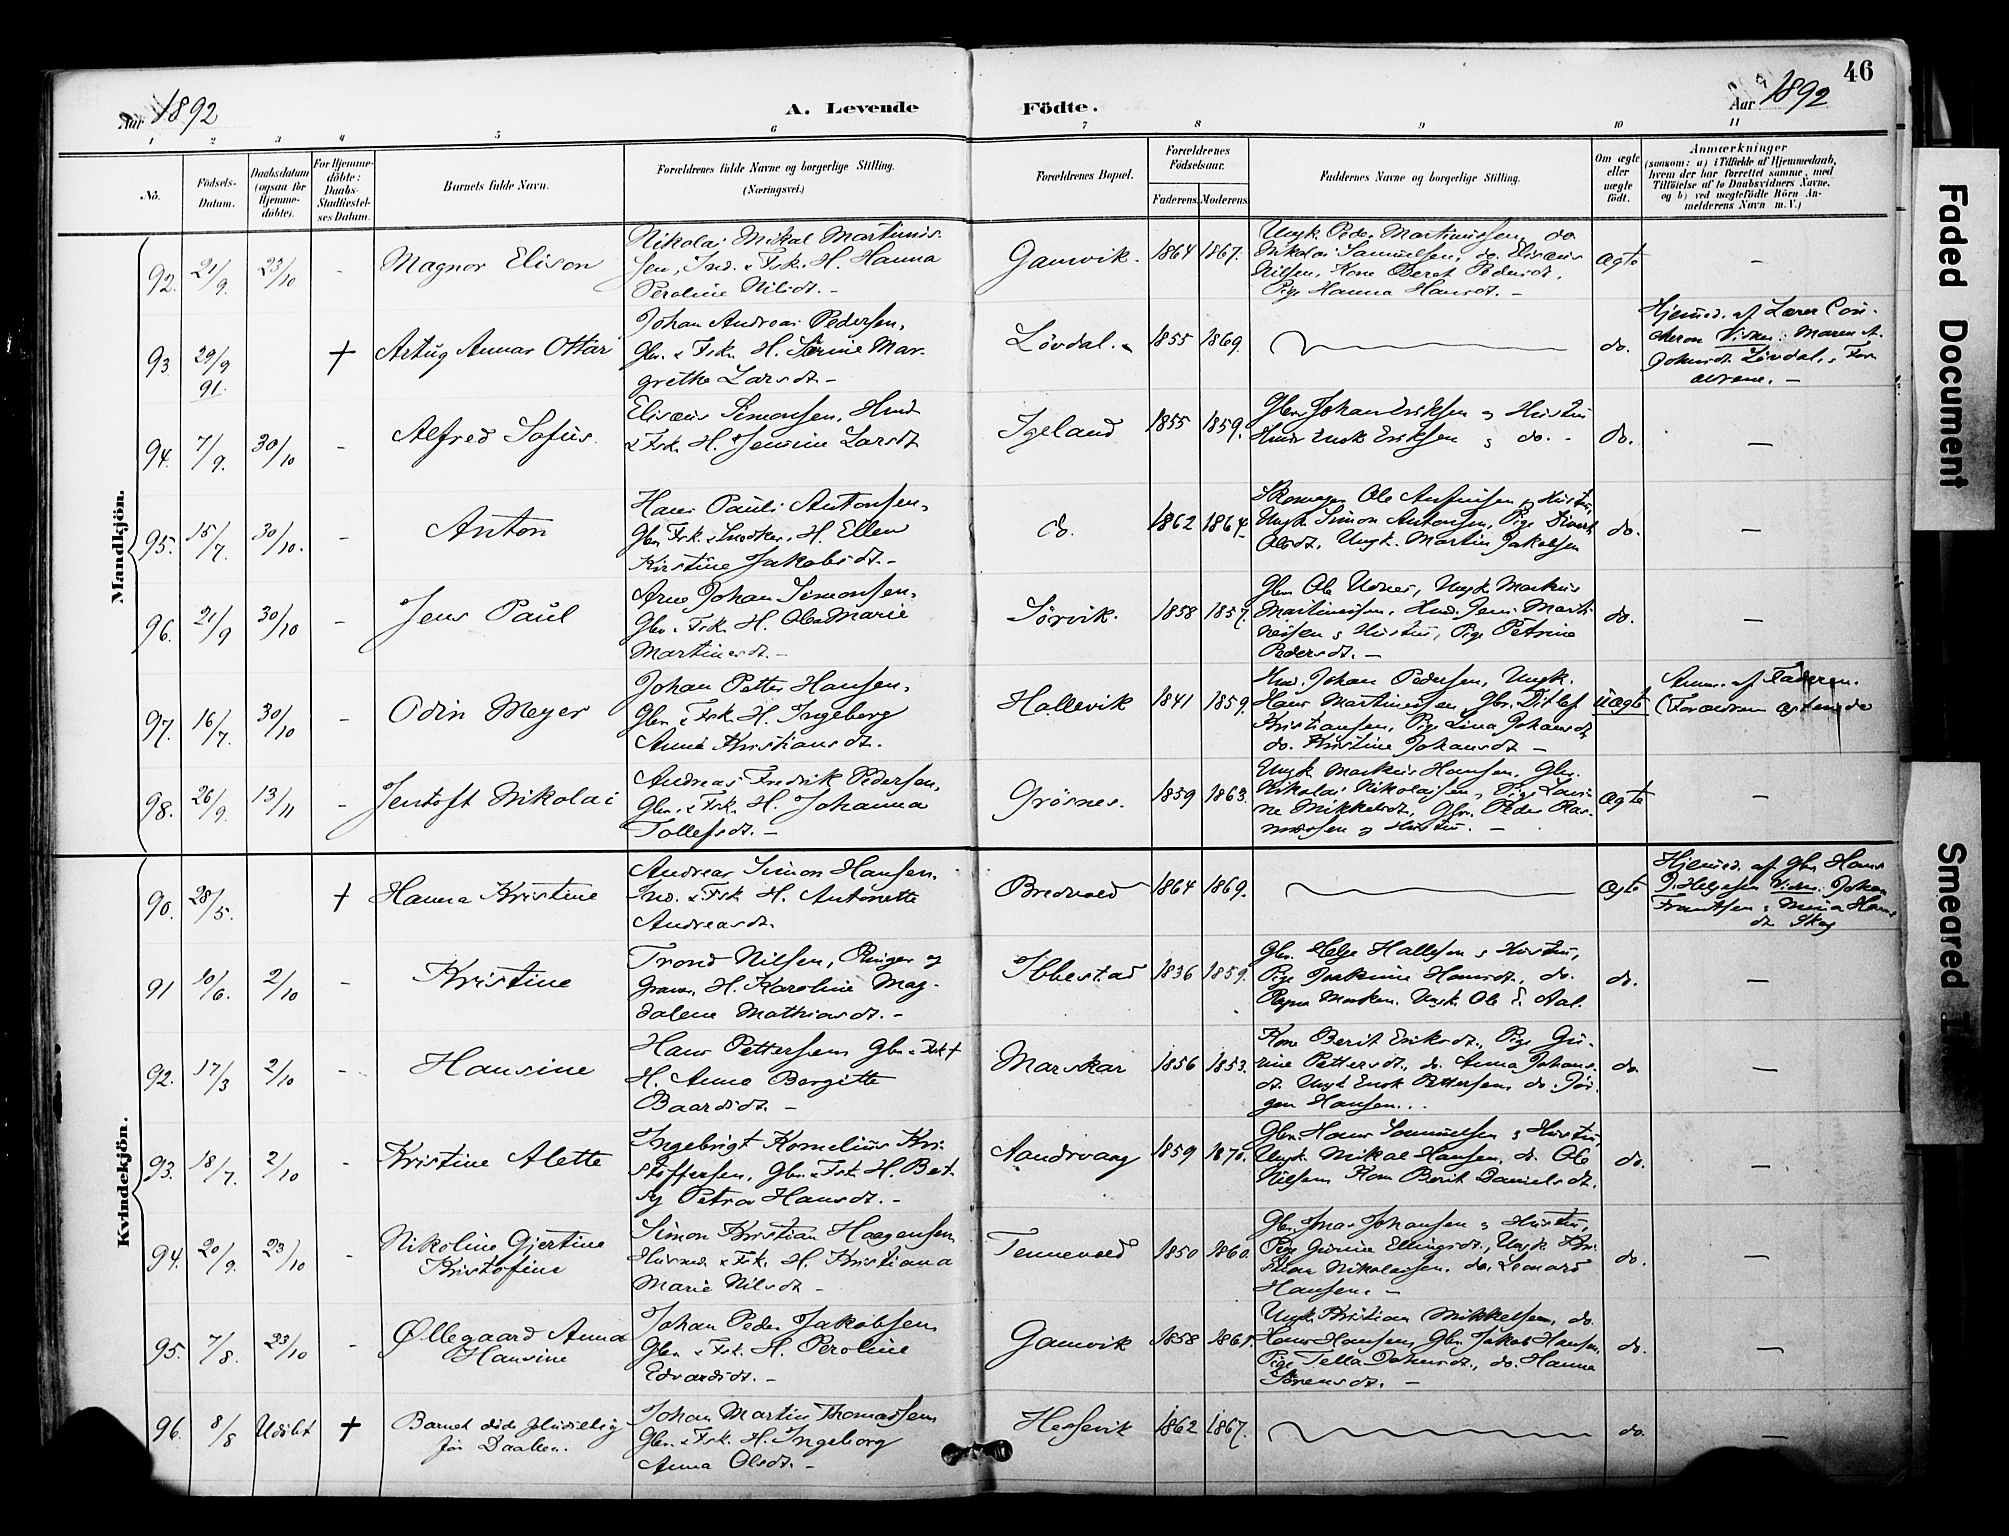 46
Aar 1892
A. Levende Födte.
Aar 1892
1 2 3 4 5 6 7 8 9 10 11
No.
Födsels-Datum.
Daabsdatum (ogsaa for Hjemme-döbte).
For Hjemme-döbte: Daabs-Stadfæstel-ses Datum.
Barnets fulde Navn.
Forældrenes fulde Navne og borgerlige Stilling. (Næringsvei.)
Forældrenes Bopæl.
Forældrenes Födselsaar.
Faderens. Moderens.
Faddernes Navne og borgerlige Stilling.
Om ægte eller uægte födt.
Anmærkninger
(saasom: a) i Tilfælde af Hjemmedaab,
hvem der har forrettet samme, med
Tilföielse af to Daabsvidners Navne,
og b) ved uægtefödte Börn An-
melderens Navn m. V.)
Mandkjön.
92. 21/9. 23/10 - Magnor Elison
Nikolai Mikal Martinus-
sen, Ind. & Fsk. H. Hanna
Peroline Nilsdt. -
Gamvik. 1864 1867.
Ungk. Peder Martinussen, do
Nikolai Samuelsen, do. Elisæus
Nilsen, Kone Beret Pedersdt,
Pige Hanna Hansdt. -
ægte -
93. 29/9 91. † Artug Annar Ottar
Johan Andreas Pedersen,
Gbr. & Fsk. H. Sørine Mar-
grethe Larsdt. -
Løvdal. 1855 1869. do.
Hjemmed. af Lærer
Vidner: Maren A.
Johansdt. Løvdal,
94. 7/9. 30/10 - Alfred Sofus.
Elisæus Simonsen, Hmd
& Fsk. H. Jensine Larsdt
Igeland 1855 1859.
Gbr. Johan Eriksen & Hustru
Hmd. Enok Eriksen & do. -
do. -
95. 15/7. 30/10. - Anton
Hans Pauli Antonsen,
Gbr. Fsk. & Snedker, H. Ellen
Kirstine Jakobsdt. -
do. 1862 1864.
Ole & Hustru,
Ungk. Simon Antonsen, Pige
Olsdt, Ungk. Martin Jakobsen
do. -
96. 21/9 30/10 - Jens Paul
Arne Johan Simonsen,
Gbr. & Fsk. H. Olea Marie
Martinesdt. -
Sørvik. 1858 1857.
Gbr. Ole Ungk. Markus
Martinussen, Hmd. Jens Marti-
nussen & Hustru, Pige Petrine
Pedersdt. -
do. -
97. 16/7. 30/10 - Odin Meyer
Johan Petter Hansen,
Gbr. & Fsk. H. Ingeborg
Anna Kristiansdt.
Hallevik 1841 1859.
Hmd. Johan Pedersen, Ungk.
Hans Martinussen, Gbr. Ditlef
Kristiansen, Pige Lina Johansdt,
do. Kristine Johansdt -
uægte
Anm. af Faderen.
98. 26/9. 13/11 - Jentoft Nikolai
Andreas Fredrik Pedersen,
Gbr. & Fsk. H. Johanna
Tollefsdt. -
Grøsnes. 1859 1863.
Ungk. Markus Hansen, Gbr.
Nikolai Nikolaisen, Pige Lovi-
ne Mikkelsdt, Gbr. Peder Ras-
mussen & Hustru. -
ægte -
Kvindekjön.
90. 28/5. † Hanna Kristine
Andreas Simon Hansen,
Ind. & Fsk. H. Antonette
Andreasdt.
Bredvold 1864 1869. ægte
Hjemmed. af Gbr. Hans
Helgesen Vidner: Johan
Frantsen & Mina Hans-
dt. Skog
91 10/6. 2/10 - Kristine
Trond Nilsen, Ringer og
Graver, H. Karoline Mag-
dalene Mathiasdt. -
Ibbestad 1836 1859.
Gbr. Helge Hallesen & Hustru,
Pige Joakime Hansdt., do.
Ragna Ungk. Ole
do. -
92. 17/3 2/10 - Hansine
Hans Pettersen Gbr. & Fsk
H. Anne Bergitte
Baardsdt. -
Marskar 1856 1853.
Kone Berit Eriksdt., Pige Gu-
rine Pettersdt., do. Anna Johans-
dt. Ungk. Enok Pettersen, do. Jør-
gen Hansen.
do. -
93. 18/7. 2/10 - Kristine Alette
Ingebrigt Kornelius Kri-
stoffersen, Gbr. & Fsk. H. Bet-
sy Petra Hansdt. -
Aandervaag 1859 1870.
Gbr. Hans Samuelsen & Hustru
Ungk. Mikal Hansen, do. Ole
Nilsen Kone Berit Danielsdt.
do. -
94. 20/9. 23/10 - Nikoline Gjertine
Kristofine
Simon Kristian Haagensen
Husmd. & Fsk. H. Kristiana
Marie Nilsdt -
Tennevold 1850 1860.
Gbr. Jonas Johansen & Hustru,
Pige Gurine Ellingsdt., Ungk. Kri-
stian Nikolaisen, do. Lenard
Hansen. -
do. -
95. 7/8. 23/10 - Øllegaard Anna
Hansine
Johan Peder Jakobsen,
Gbr. & Fsk. H. Peroline
Edvardsdt. -
Gamvik 1858 1861.
Ungk. Kristian Mikkelsen, do.
Hans Hansen, Gbr. Jakob Hansen,
Pige Tella Johansdt., do. Hanna
Sørensdt. -
do. -
96. 8/8 Udøbt † Barnet døde pludselig
før Daaben.
Johan Martin Thomassen
Gbr. & Fsk. H. Ingeborg
Anna Olsdt. -
Hessevik 1862 1867. do. -
Faded Document
Smeared